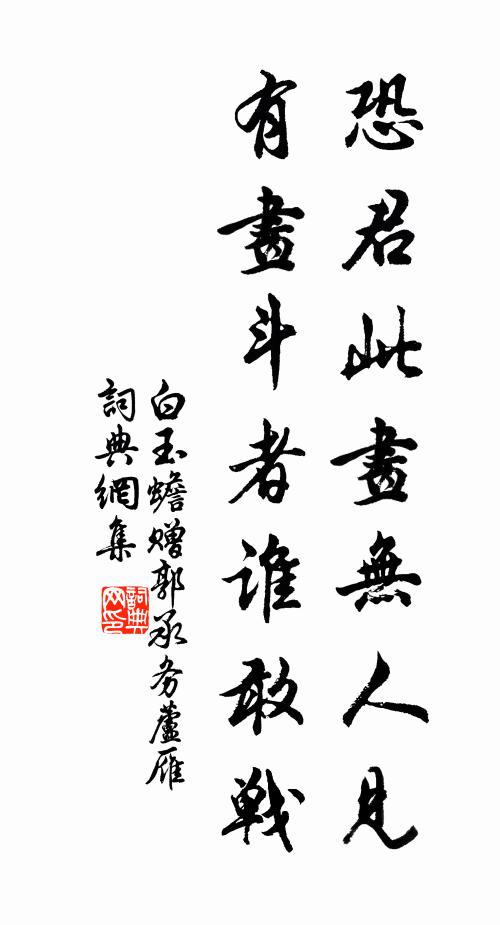 恐君此畫無人見
有畫斗者誰敢戰
白玉蟾赠郭承务蘆雁
詞典網集
詞典网印